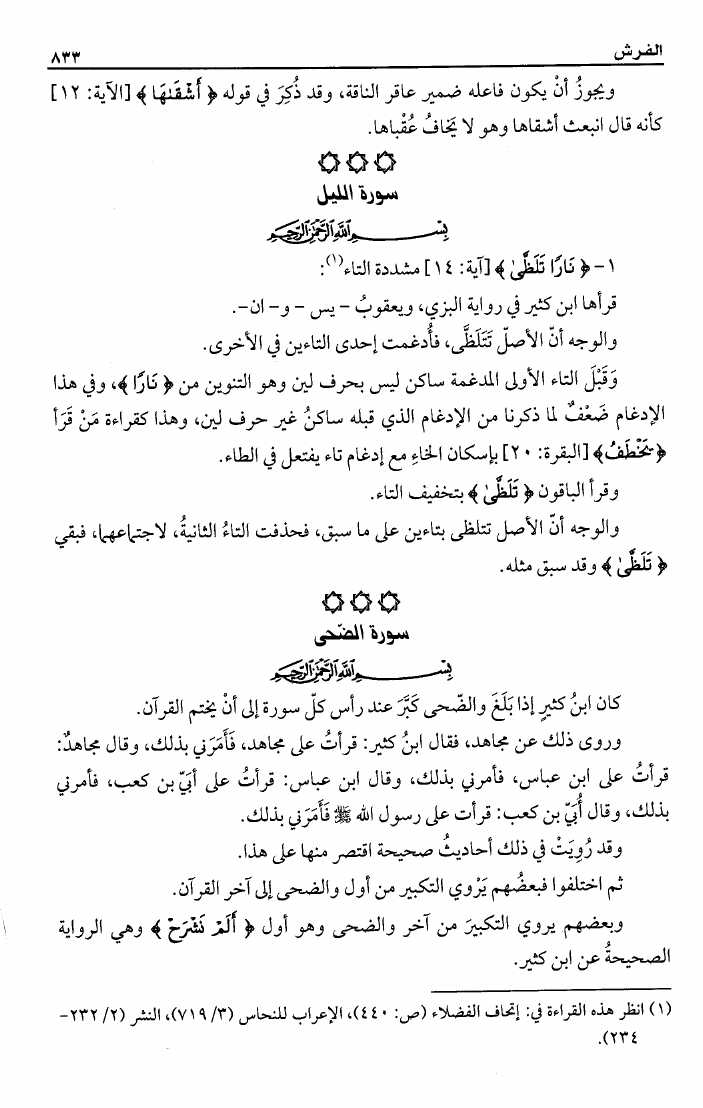 الفرش
٨٣٣
ويجوزُ أنْ يكون فاعله ضمير عاقر الناقة، وقد ذُكِرَ في قوله ﴿ أَشْقَىٰهَا ﴾ [الآية: ١٢]
كأنه قال انبعث أشقاها وهو لا يَخافُ عُقْباها.
سورة الليل
بِسْمِ اللَّهِ الرَّحْمَٰنِ الرَّحِيمِ
١- ﴿ نَارًا تَلَظَّىٰ ﴾ [آية: ١٤] مشددة التاء(١):
قرأها ابن كثير في رواية البزي، ويعقوبُ - يس - و- ان-.
والوجه أنّ الأصلّ تَتَلَظَّى، فأُدغمت إحدى التاءين في الأخرى.
وَقَبْلَ التاء الأولى المدغمة ساكن ليس بحرف لين وهو التنوين من ﴿ نَارًا ﴾، وفي هذا
الإدغام ضَعْفٌ لما ذكرنا من الإدغام الذي قبله ساكنُ غير حرف لين، وهذا كقراءة مَنْ قَرَأَ
﴿ يَخْطَفُ﴾ [البقرة: ٢٠] بإسكان الخاءِ مع إدغام تاء يفتعل في الطاء.
وقرأ الباقون ﴿ تَلَظَّىٰ ﴾ بتخفيف التاء.
والوجه أنّ الأصل تتلظى بتاءين على ما سبق، فحذفت التاءُ الثانيةُ، لاجتماعهما، فبقي
﴿ تَلَظَّىٰ ﴾ وقد سبق مثله.
سورة الضّحى
بِسْمِ اللَّهِ الرَّحْمَٰنِ الرَّحِيمِ
كان ابنُ كثيرٍ إذا بَلَغَ والضّحى كَبَّرَ عند رأس كلّ سورة إلى أنْ يختم القرآن.
وروى ذلك عن مجاهد، فقال ابنُ كثير: قرأتُ على مجاهد، فَأَمَرَني بذلك، وقال مجاهدٌ:
قرأتُ على ابن عباس، فأمرني بذلك، وقال ابن عباس: قرأتُ على أبَيّ بن كعب، فأمرني
بذلك، وقال أُبَيّ بن كعب: قرأت على رسول الله ﷺ فَأَمَرَني بذلك.
وقد رُوِيَتْ في ذلك أحاديثُ صحيحة اقتصر منها على هذا.
ثم اختلفوا فبعضُهم يَرْوي التكبير من أول والضحى إلى آخر القرآن.
وبعضهم يروي التكبيرَ من آخر والضحى وهو أول ﴿ أَلَمْ نَشْرَحْ ﴾ وهي الرواية
الصحيحةُ عن ابن كثير.
(١) انظر هذه القراءة في: إتحاف الفضلاء (ص: ٤٤٠)، الإعراب للنحاس (٣/ ٧١٩)، النشر (٢/ ٢٣٢-
٢٣٤).